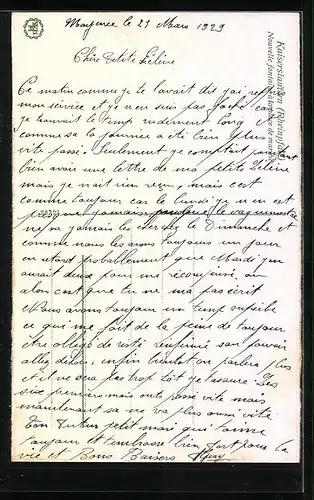 Mayence le 21 Mars 1929
Chère Petite Hélène
Ce matin comme je te l'avait dit j'ai repri
mon service et je n'en suis pas faché car
je trouvait le temp rudement long et
comme sa la journée a été bien plus
vite passé. Seulement je comptait pourtant
bien avoir une lettre de ma petite Hélène
mais je n'ait rien reçu, mais c'est
comme toujour car le lundi je n'en est
presque jamais le vaguemestre
ne va jamais les cherchez le Dimanche et
comme nous les avons toujours un jour
en retard probablement que Mardi j'en
aurait deux pour me récompensé, ou
alors c'est que tu ne m'a pas écrit
Nous avons toujour un temp superbe
ce qui me fait de la peine de toujour
être obligé de resté renfermé san pouvoir
allez dehors, enfin bientot on parlera plus
et ce ne sera pas trop tôt je t'assure. Les
six premiers mois onts passé vite mais
maintenant sa ne va plus aussi vite
Ton futur petit mari qui t'aime
toujour et t'embrasse bien fort pour la
vie et Bons Baisers
Kaiserslautern (Rheinpfalz)
Nouvelle fontaine